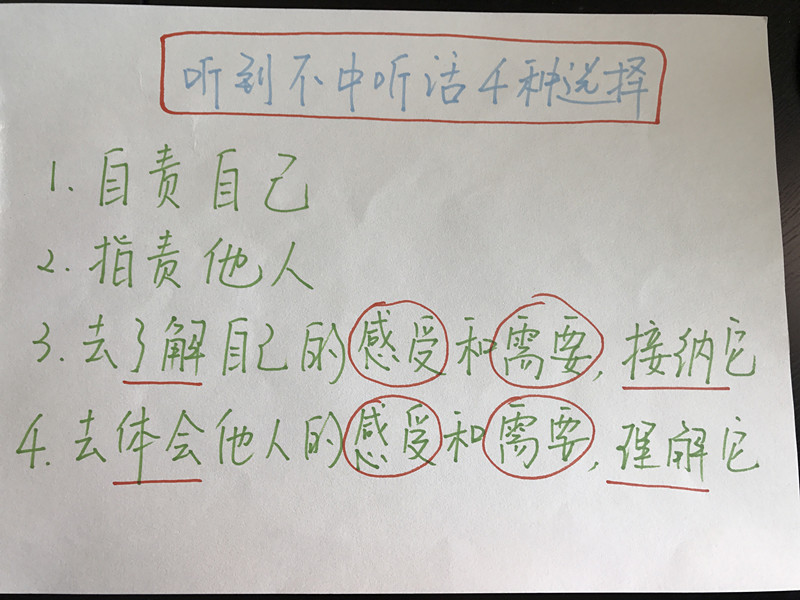 听到不中听话4种选择
1. 自责自己
2. 指责他人
3. 去了解自己的感受和需要，接纳它
4. 去体会他人的感受和需要，理解它